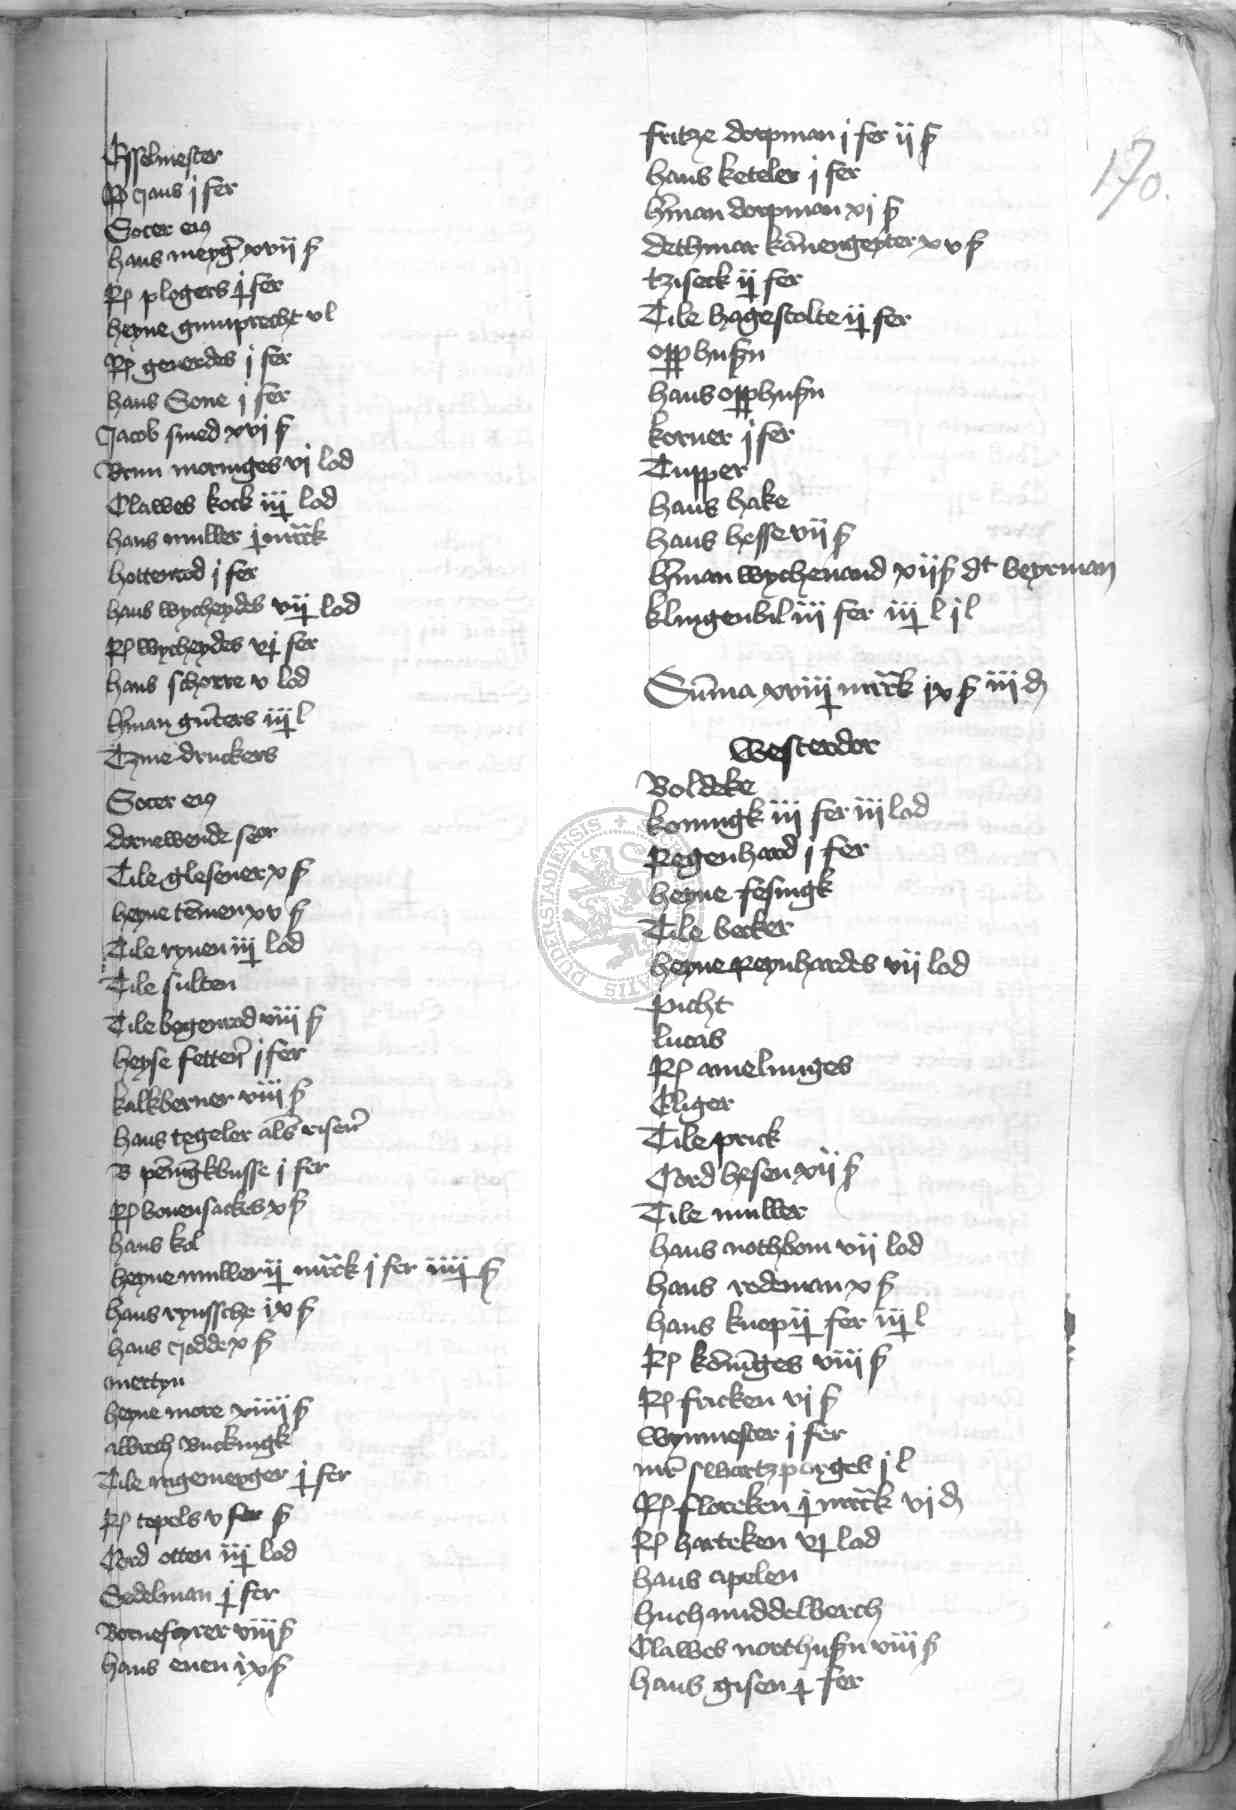 Esselmester
Rp Hans j fer
Socer eius
hans meyger xvij ß
Rp plogers j fer
heyne gumprecht v l
Rp geuerdes j fer
hans Sone j fer
Jacob smed xvj ß
Brun moringes vj lod
Clawes kock iij lod
hans muller j marck
hottenrod j fer
hans wycheydes vij lod
Rp wycheydes vj fer
hans schorre v lod
herman gunters iij l
Tzine druckers
Socer eius
dornewende
Tile glesener x ß
heyne temen xv ß
Tile rynen iij lod
Tile sulten
Tile bogenrod viij ß
heyse fetten j fer
kalkberner viij ß
hans tegeler als risen
B penningkbusse j fer
Rp bouensackes x ß
hans kol
heyne muller ij marck j fer iiij ß
hans rynssche ix ß
hans Jodde x ß
mertyn
heyne more xiiij ß
albrech Buckingk
Tile nigemeyger j fer
Rp tepels v fer ß
Cord otten iij lod
Sedelman j fer
Bornefoyrer viij ß
hans euen ix ß
fritze dorpman j fer ij ß
hans keteler j fer
herman dorpman xj ß
dethmar kannengeyter xv ß
tziseck ij fer
Tile hagestolte ij fer
opphusen
hans opphusen
korner j fer
Tupper
hans hake
hans hesse vij ß
herman wychenand xij ß dt beyrman
klingenbil iij fer iij l j l
Summa xviij marck ix ß iij d
Westerdor
Boldeke
koningk iij fer iij lod
Regenhard j fer
heyne fesingk
Tile becker
heyne Reynhardes vij lod
picht
lucas
Rp amelunges
Eliger
Tile prick
Cord hesen xij ß
Tile muller
hans nothbom vij lod
hans rodeman x ß
hans knop ij fer iij l
Rp koninges viij ß
Rp fricken vj ß
Wynmester j fer
mester swartzpargeb j l
Rp floreken j marck vj d
Rp harteken vj lod
hans apelen
huch middelberch
Clawes northusen viij ß
hans gisen j fer
170.
SIGILLUM CIVITATIS DUDERSTADIENSIS